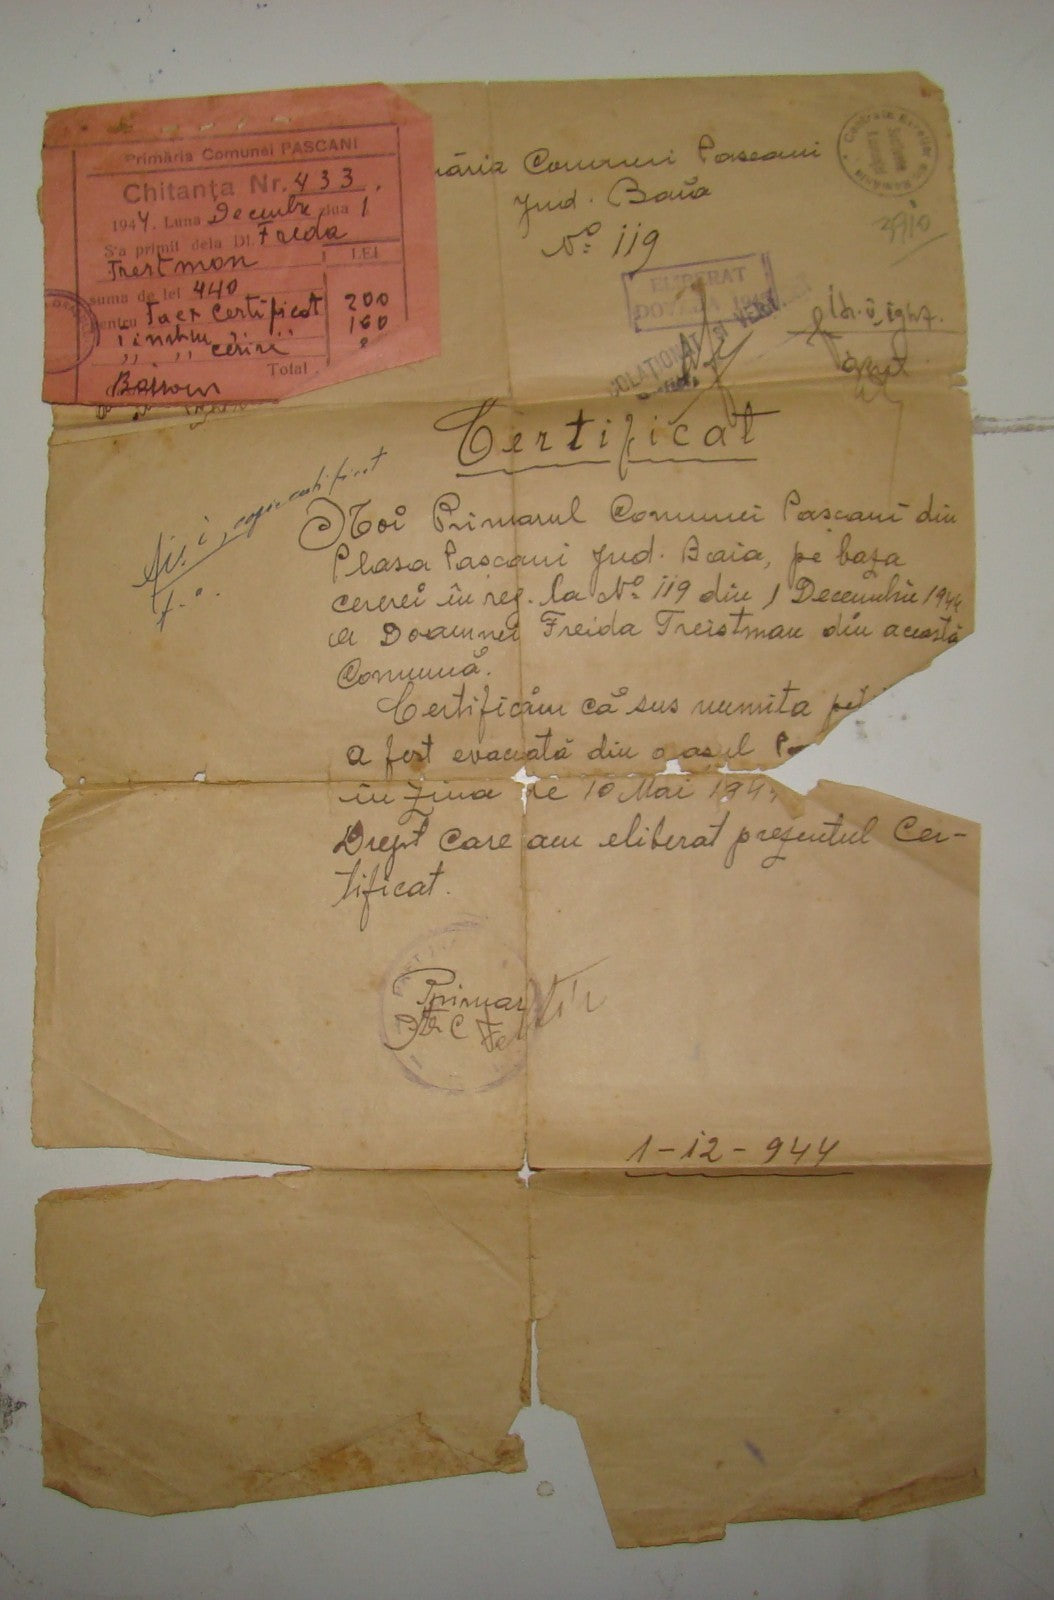 Primăria Comunei PASCANI
Chitanţa Nr. 433.
1944. Luna Decembre ziua 1
S'a primit dela Dl. Freida
Trestman
LEI
suma de lei 440
pentru Taex Certificat 200
" " cerire 160
Total
măria Comunei Pascani
Jud. Baia
No 119
3910
ELIBERAT
DOVADA 194
COLAŢIONAT ŞI VERI
Certificat
copie certificat
Noi Primarul Comunei Pascani din
Plasa Pascani Jud. Baia, pe baza
cererei în reg. la No 119 din 1 Decembrie 1944
a Doamnei Freida Treistman din această
Comună.
Certificăm că sus numita
a fost evacuată din orasul
în ziua de 10 Mai 194
Drept care am eliberat prezentul Cer-
tificat.
Primar
1-12-944